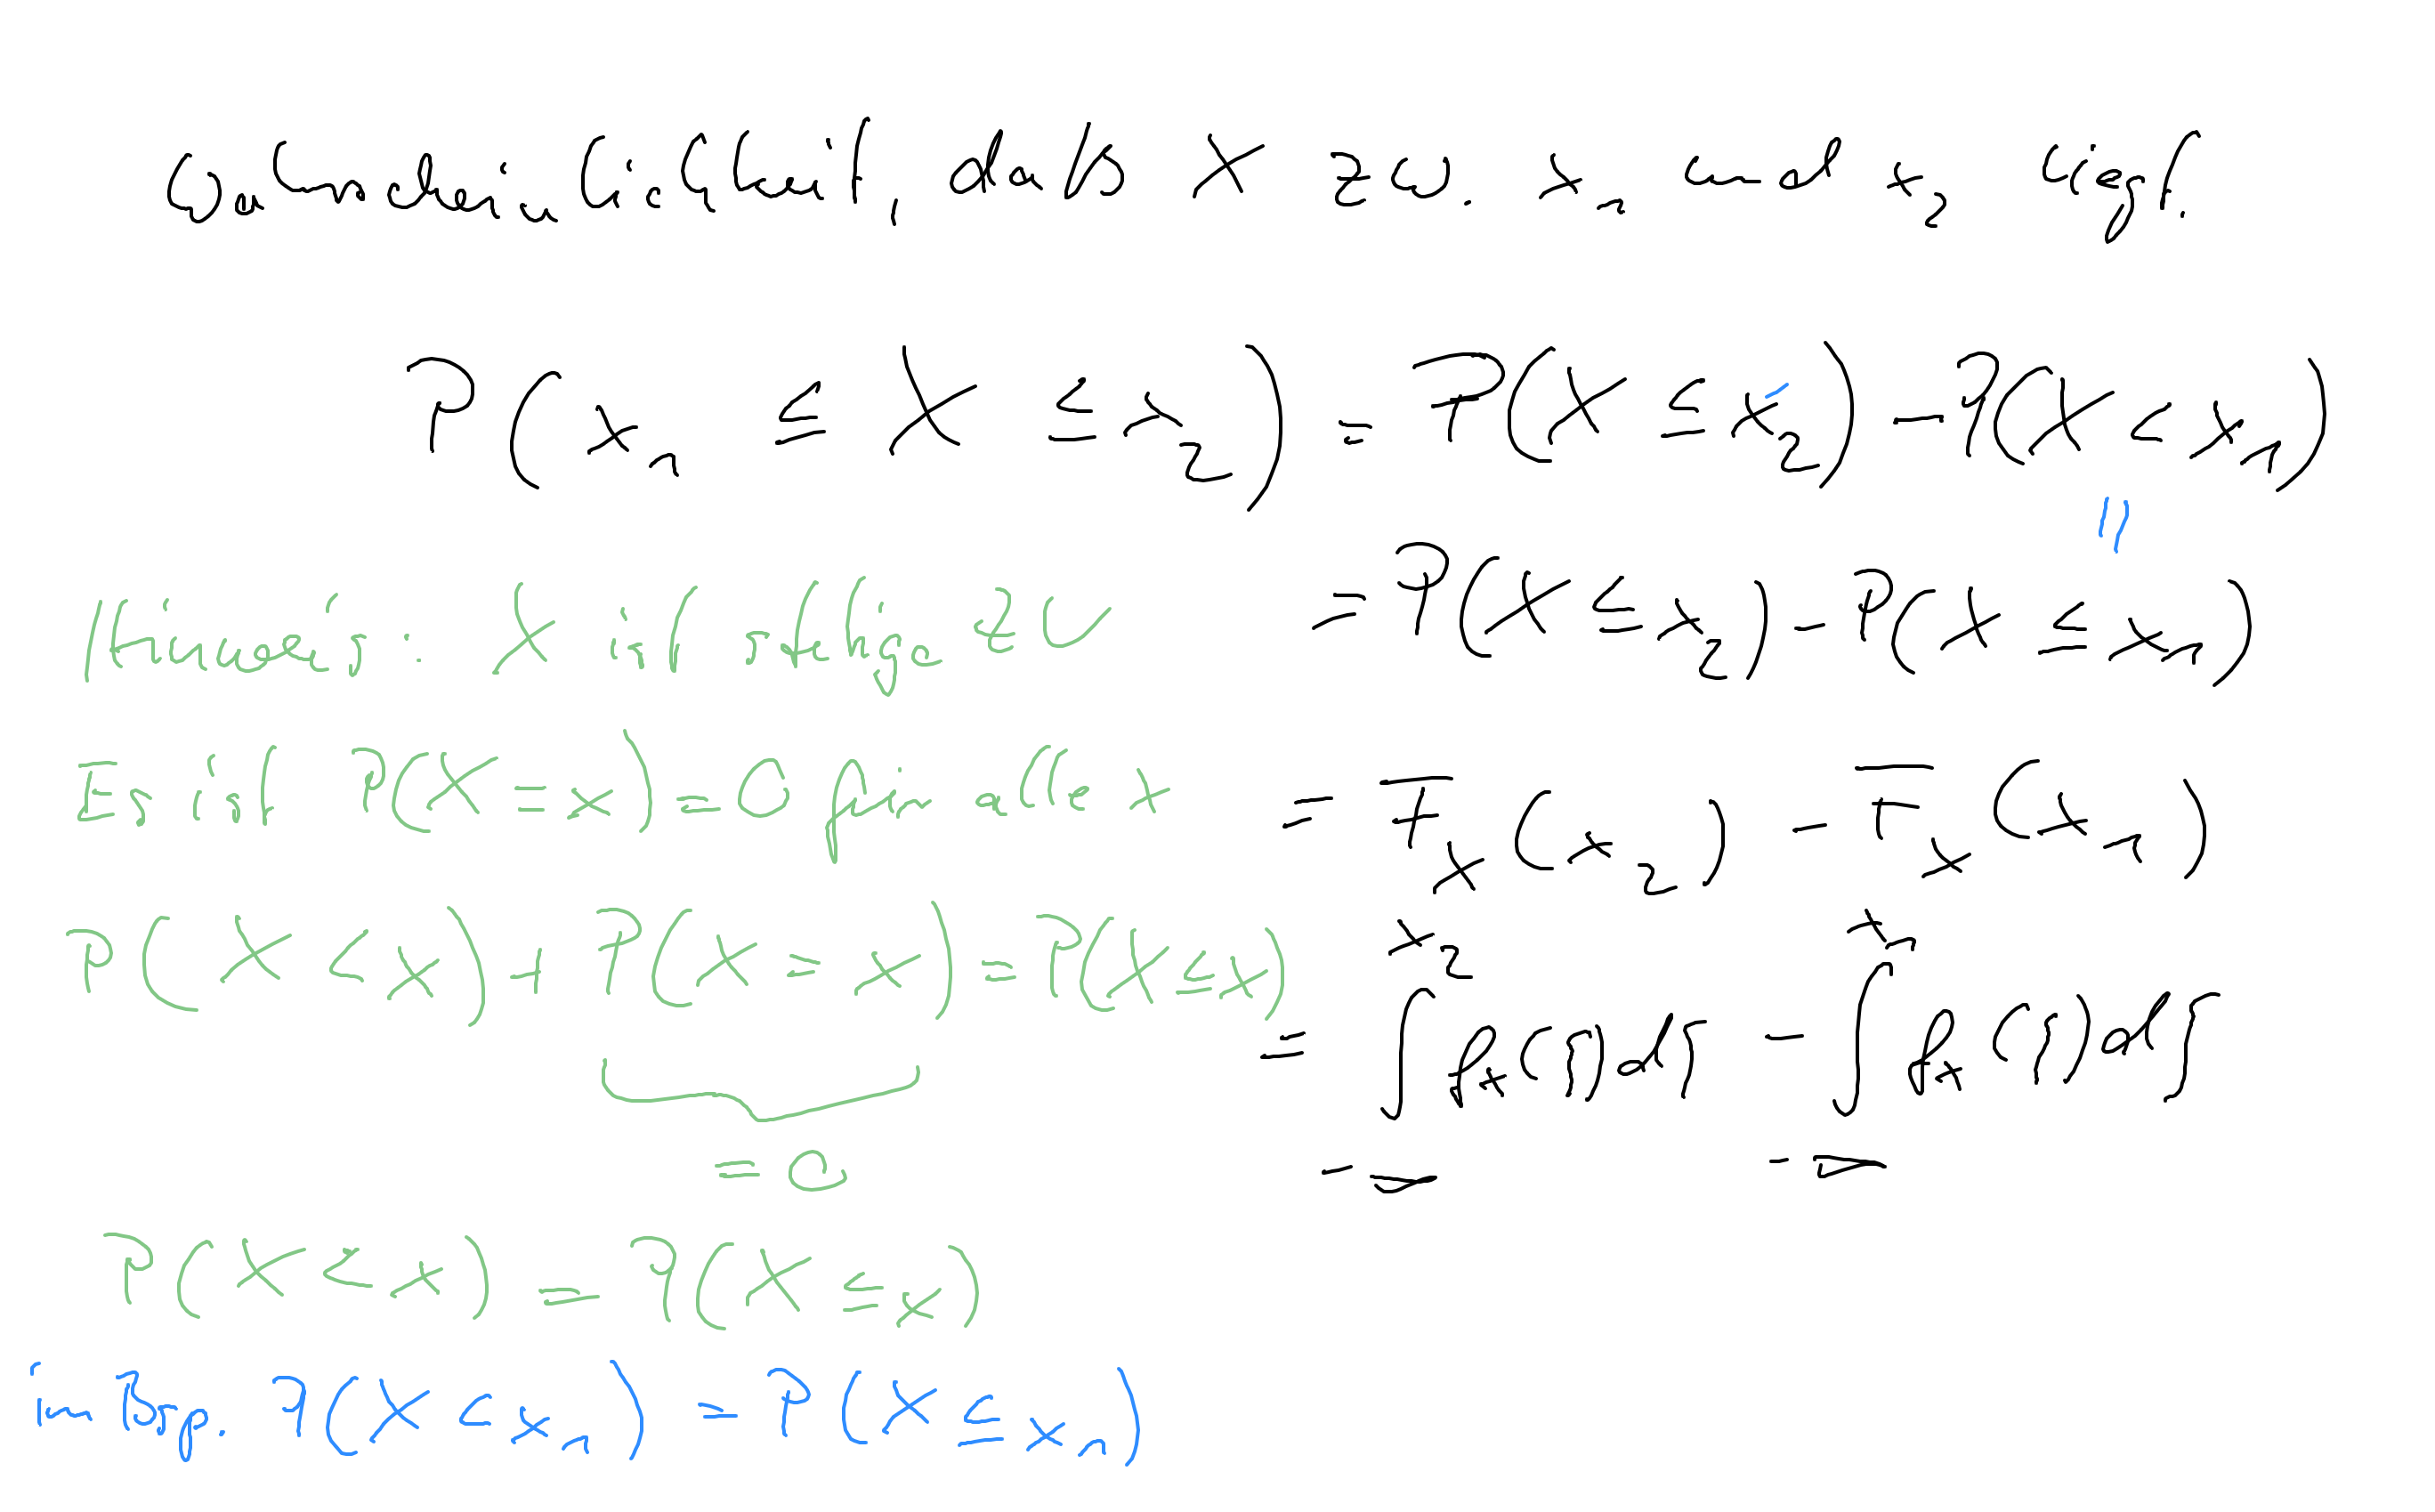 Wahrscheinlichkeit, dass X zw. x₁ und x₂ liegt.
P(x₁ ≤ X ≤ x₂) = P(X ≤ x₂) - P(X < x₁)
||
= P(X ≤ x₂) - P(X ≤ x₁)
= F_X(x₂) - F_X(x₁)
= ∫_{-∞}^{x₂} f_X(y) dy - ∫_{-∞}^{x₁} f_X(y) dy
Hinweis: X ist stetige ZV
Es ist P(X = x) = 0 für alle x
P(X < x) + P(X = x) = P(X ≤ x)
= 0
P(X < x) = P(X ≤ x)
im Bsp. P(X < x₁) = P(X ≤ x₁)